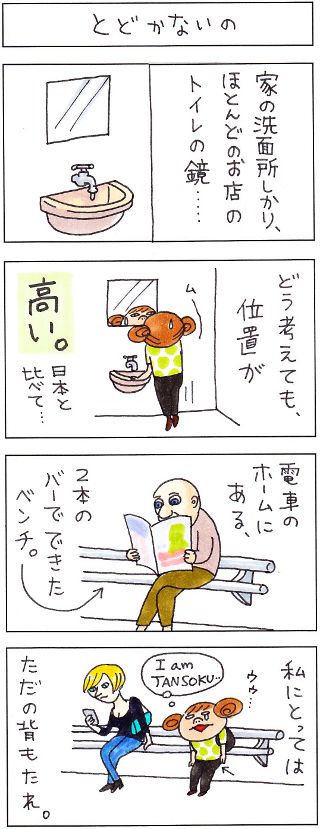 とどかないの
家の洗面所しかり、
ほとんどのお店の
トイレの鏡……
どう考えても、
位置が
ム
高い。
日本と
比べて…
電車の
ホームに
ある、
2本の
バーでできた
ベンチ。
私にとっては
ウゥ…
I am
TANSOKU..
ただの背もたれ。